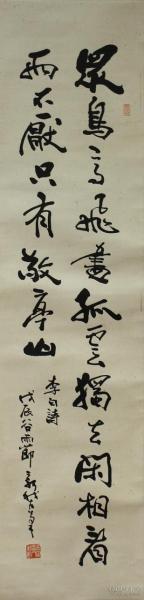 眾鳥高飛盡孤雲獨去閑相看
兩不厭只有敬亭山
李白詩
戊辰谷雨節